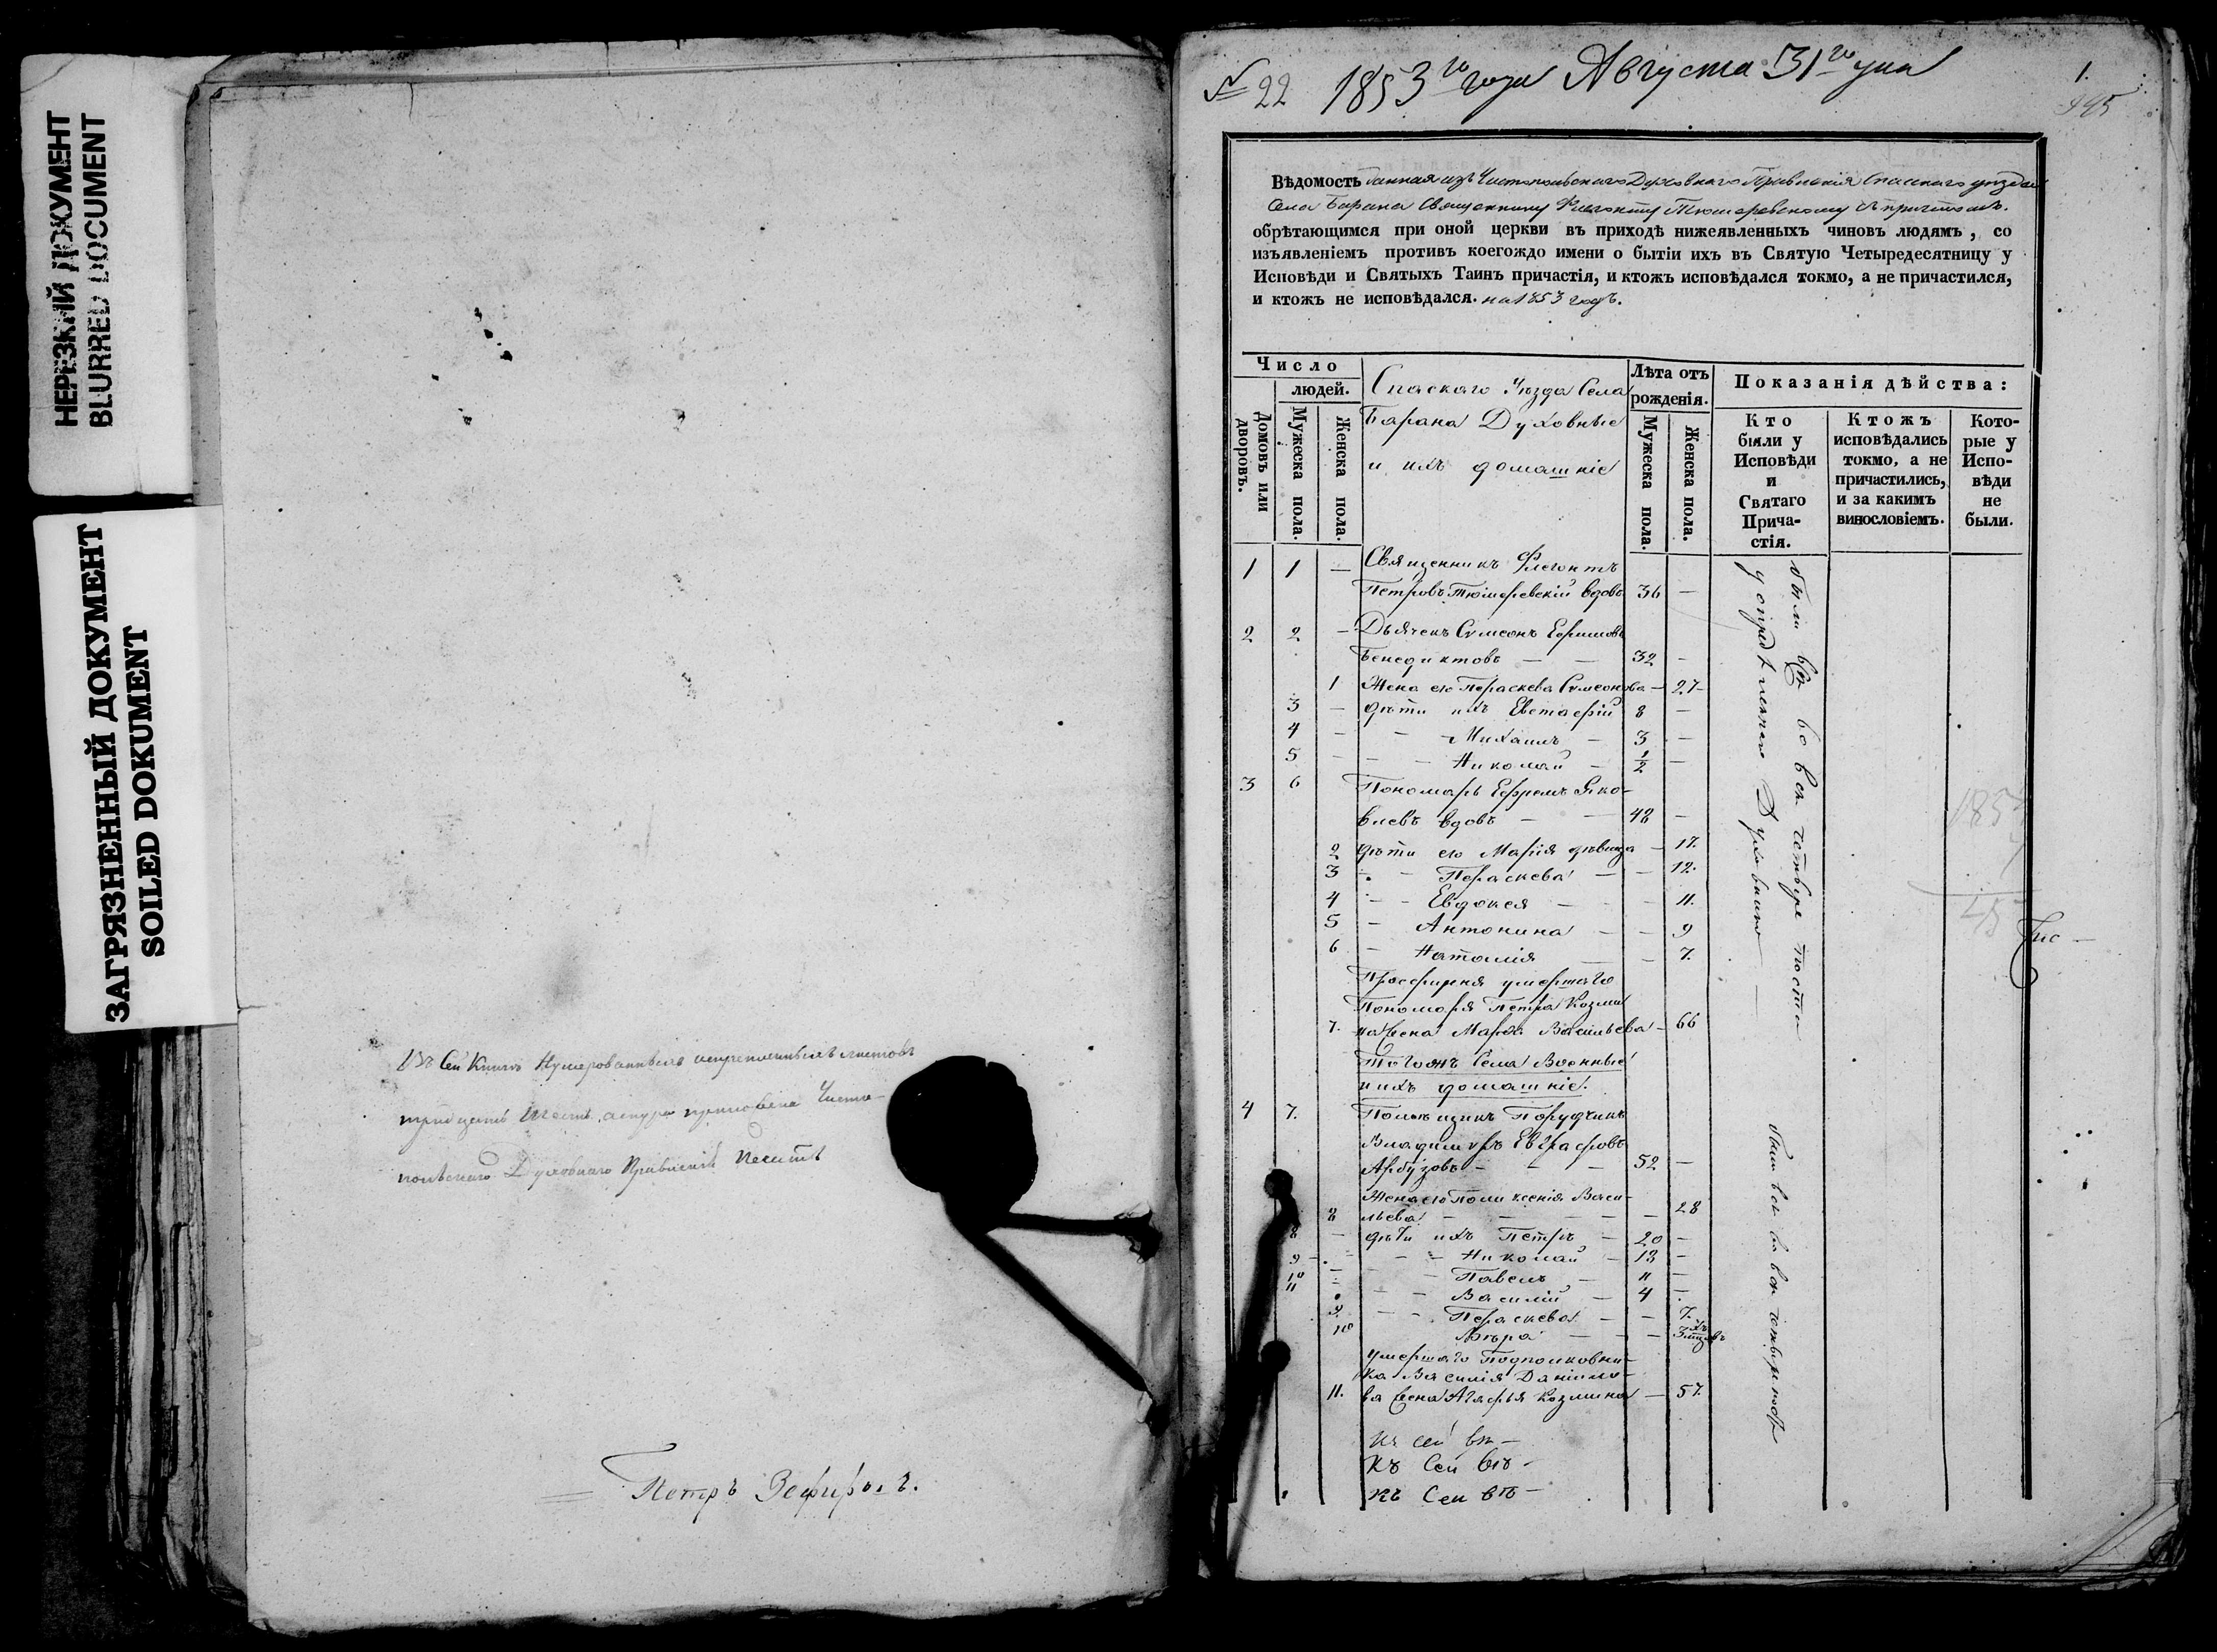 НЕРЕЗКИЙ ДОКУМЕНТ
BLURRED DOCUMENT
ЗАГРЯЗНЕННЫЙ ДОКУМЕНТ
SOILED DOKUMENT
Въ сей книгѣ нумерованныхъ листовъ
тридцать шесть
Духовнаго Правленія печать
Петръ Зефировъ.
№ 22 1853го года Августа 31го дня
1.
Вѣдомость данная изъ Чистопольскаго Духовнаго Правленія Спасскаго уѣзда
Села Барана Священнику Флегонту Тюшеревскому съ причтомъ.
обрѣтающимся при оной церкви въ приходѣ нижеявленныхъ чиновъ людямъ, со
изъявленіемъ противъ коегождо имени о бытіи ихъ въ Святую Четыредесятницу у
Исповѣди и Святыхъ Таинъ причастія, и ктожъ исповѣдался токмо, а не причастился,
и ктожъ не исповѣдался. на 1853 годъ.
Число
людей.
Домовъ или дворовъ.
Мужеска пола.
Женска пола.
Спаскаго Уѣзда Села
Барана Духовные
и ихъ домашніе
Лѣта отъ
рожденія.
Мужеска пола.
Женска пола.
Показанія дѣйства:
Кто
были у
Исповѣди
и
Святаго
Прича-
стія.
Ктожъ
исповѣдались
токмо, а не
причастились,
и за какимъ
винословіемъ.
Кото-
рые у
Испо-
вѣди
не
были.
1 1 — Священникъ Флегонтъ
Петровъ Тюшеревскій вдовъ 36 —
2 2 — Дьячекъ Сѵмеонъ Ефимовъ
Бенедиктовъ — — 32 —
1 Жена его Пераскева Сѵмеонова — 27
3 — дѣти ихъ Евстафій 8 —
4 — — Михаилъ — 3 —
5 — — Николай — 1/2 —
3 6 Пономарь Ефремъ Яко-
влевъ вдовъ — — 48 —
2 дѣти его Марія дѣвица — 17.
3 — Пераскева — — 12.
4 — — Евдокея — — 11.
5 — Антонина — — 9
6 — Наталія — 7.
Просфирня умершаго
Пономаря Петра Козми
7. на жена Марѳа Васильева — 66
Тогожъ Села Военные
и ихъ домашніе.
4 7. Помѣщикъ Поручикъ
Владимиръ Евграфовъ
Арбузовъ — — — 52 —
Жена его Поликсенія Васи-
8 льева — — — 28
8 — дѣти ихъ Петръ — 20 —
9 — — Николай — 13 —
10 — Павелъ — 11 —
11 — — Василій — 4 —
9. — — Пераскева — — 7.
10 Вѣра — — —
умершаго Подполковни-
ка Василія Данило-
11. ва жена Агафья Козмина — 57.
Къ сей вѣ—
Къ сей вѣ—
Къ сей вѣ—